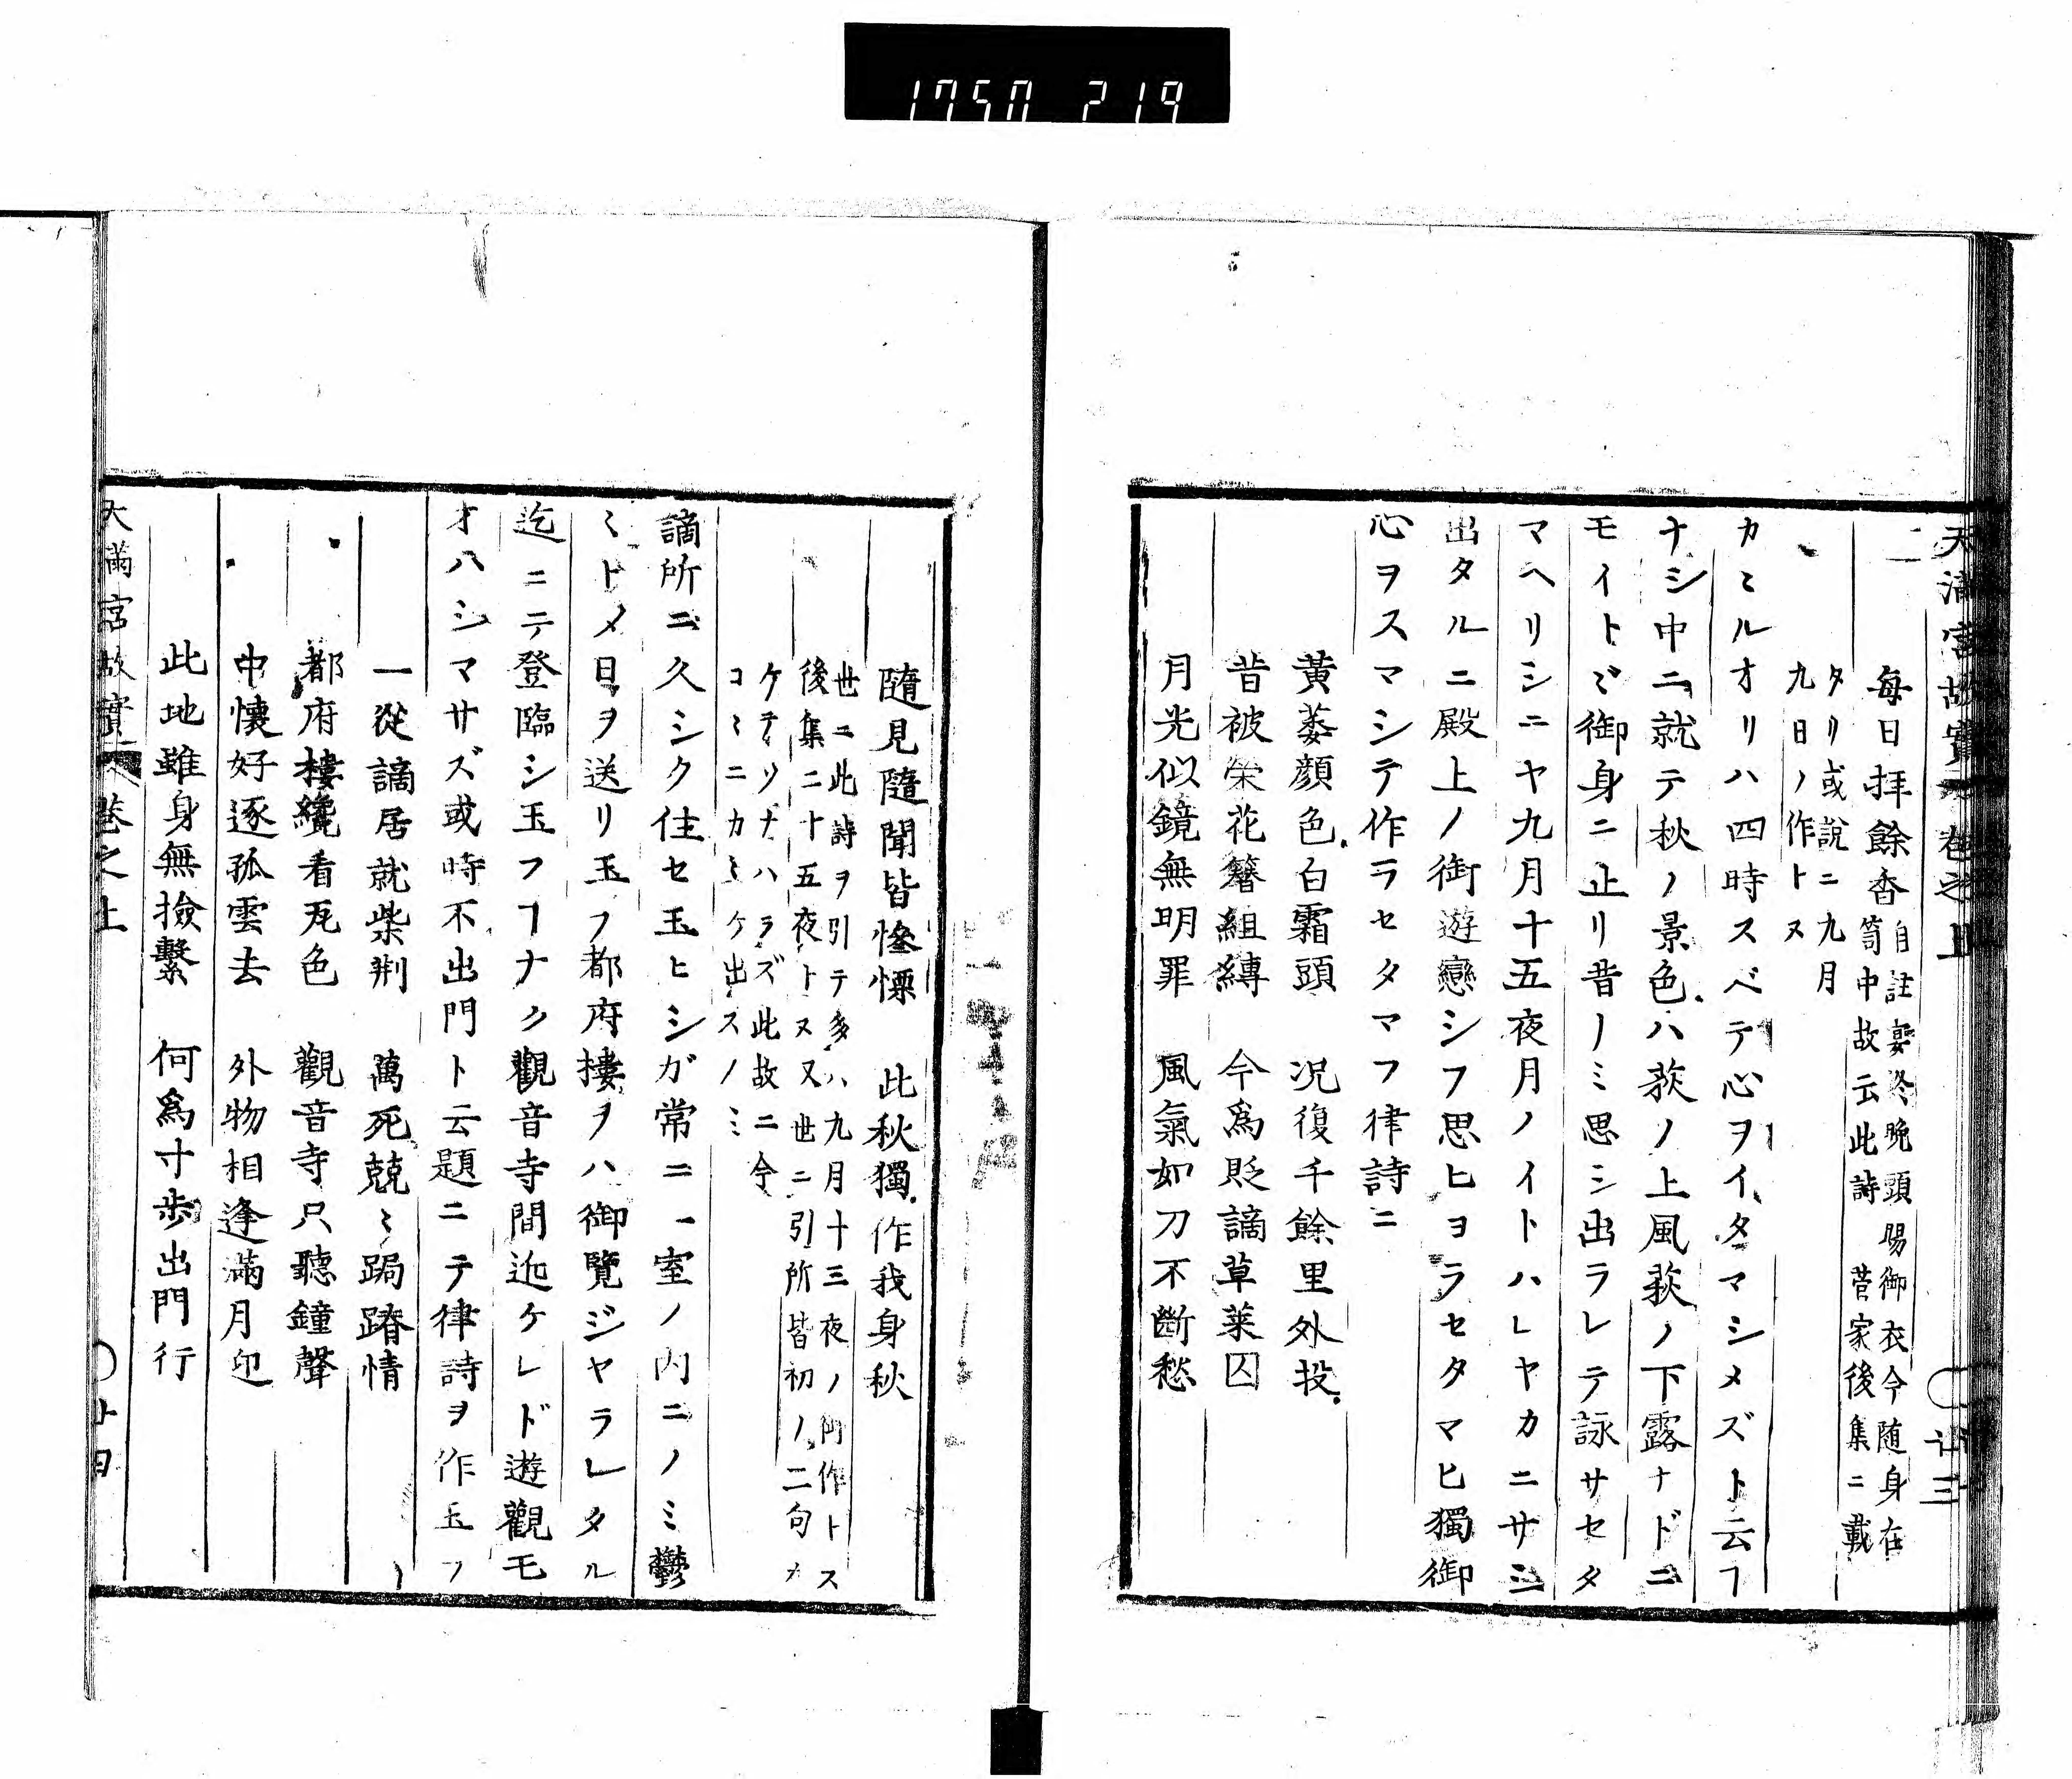 1750 219
天満宮故實 巻之上 〇 廿三
毎日拝餘香
自註宴終晩頭賜御衣今随身在
笥中故云此詩 菅家後集ニ載
タリ或説ニ九月
九日ノ作トス
カミルオリハ四時スベテ心ヲイタマシメズト云フ
ナシ中ニ就テ秋ノ景色ハ荻ノ上風萩ノ下露ナドニ
モイトヾ御身ニ止リ昔ノミ思シ出ラレテ詠サセタ
マヘリシニヤ九月十五夜月ノイトハレヤカニサシ
出タルニ殿上ノ御遊戀シフ思ヒヨラセタマヒ獨御
心ヲスマシテ作ラセタマフ律詩ニ
黄萎顔色白霜頭 况復千餘里外投
昔被栄花簪組縛 今爲貶謫草莱囚
月光似鏡無明罪 風氣如刀不斷愁
隨見隨聞皆惨慄 此秋獨作我身秋
世ニ此詩ヲ引テ多ハ九月十三夜ノ御作トス
後集二十五夜トス又世ニ引所皆初ノ二句カ
ケテソナハラズ此故ニ今
コミニカミケ出スノミ
謫所ニ久シク住セ玉ヒシガ常ニ一室ノ内ニノミ鬱
ミトメ日ヲ送リ玉フ都府樓ヲハ御覽ジヤラレタル
迄ニテ登臨シ玉フフナク觀音寺間近ケレド遊觀モ
オハシマサズ或時不出門ト云題ニテ律詩ヲ作玉フ
一從謫居就柴荊 萬死兢ミ跼蹐情
都府樓纔看瓦色 觀音寺只聽鐘聲
中懐好逐孤雲去 外物相逢滿月迎
此地雖身無撿繫 何爲寸歩出門行
天満宮故實 巻之上 〇 廿四